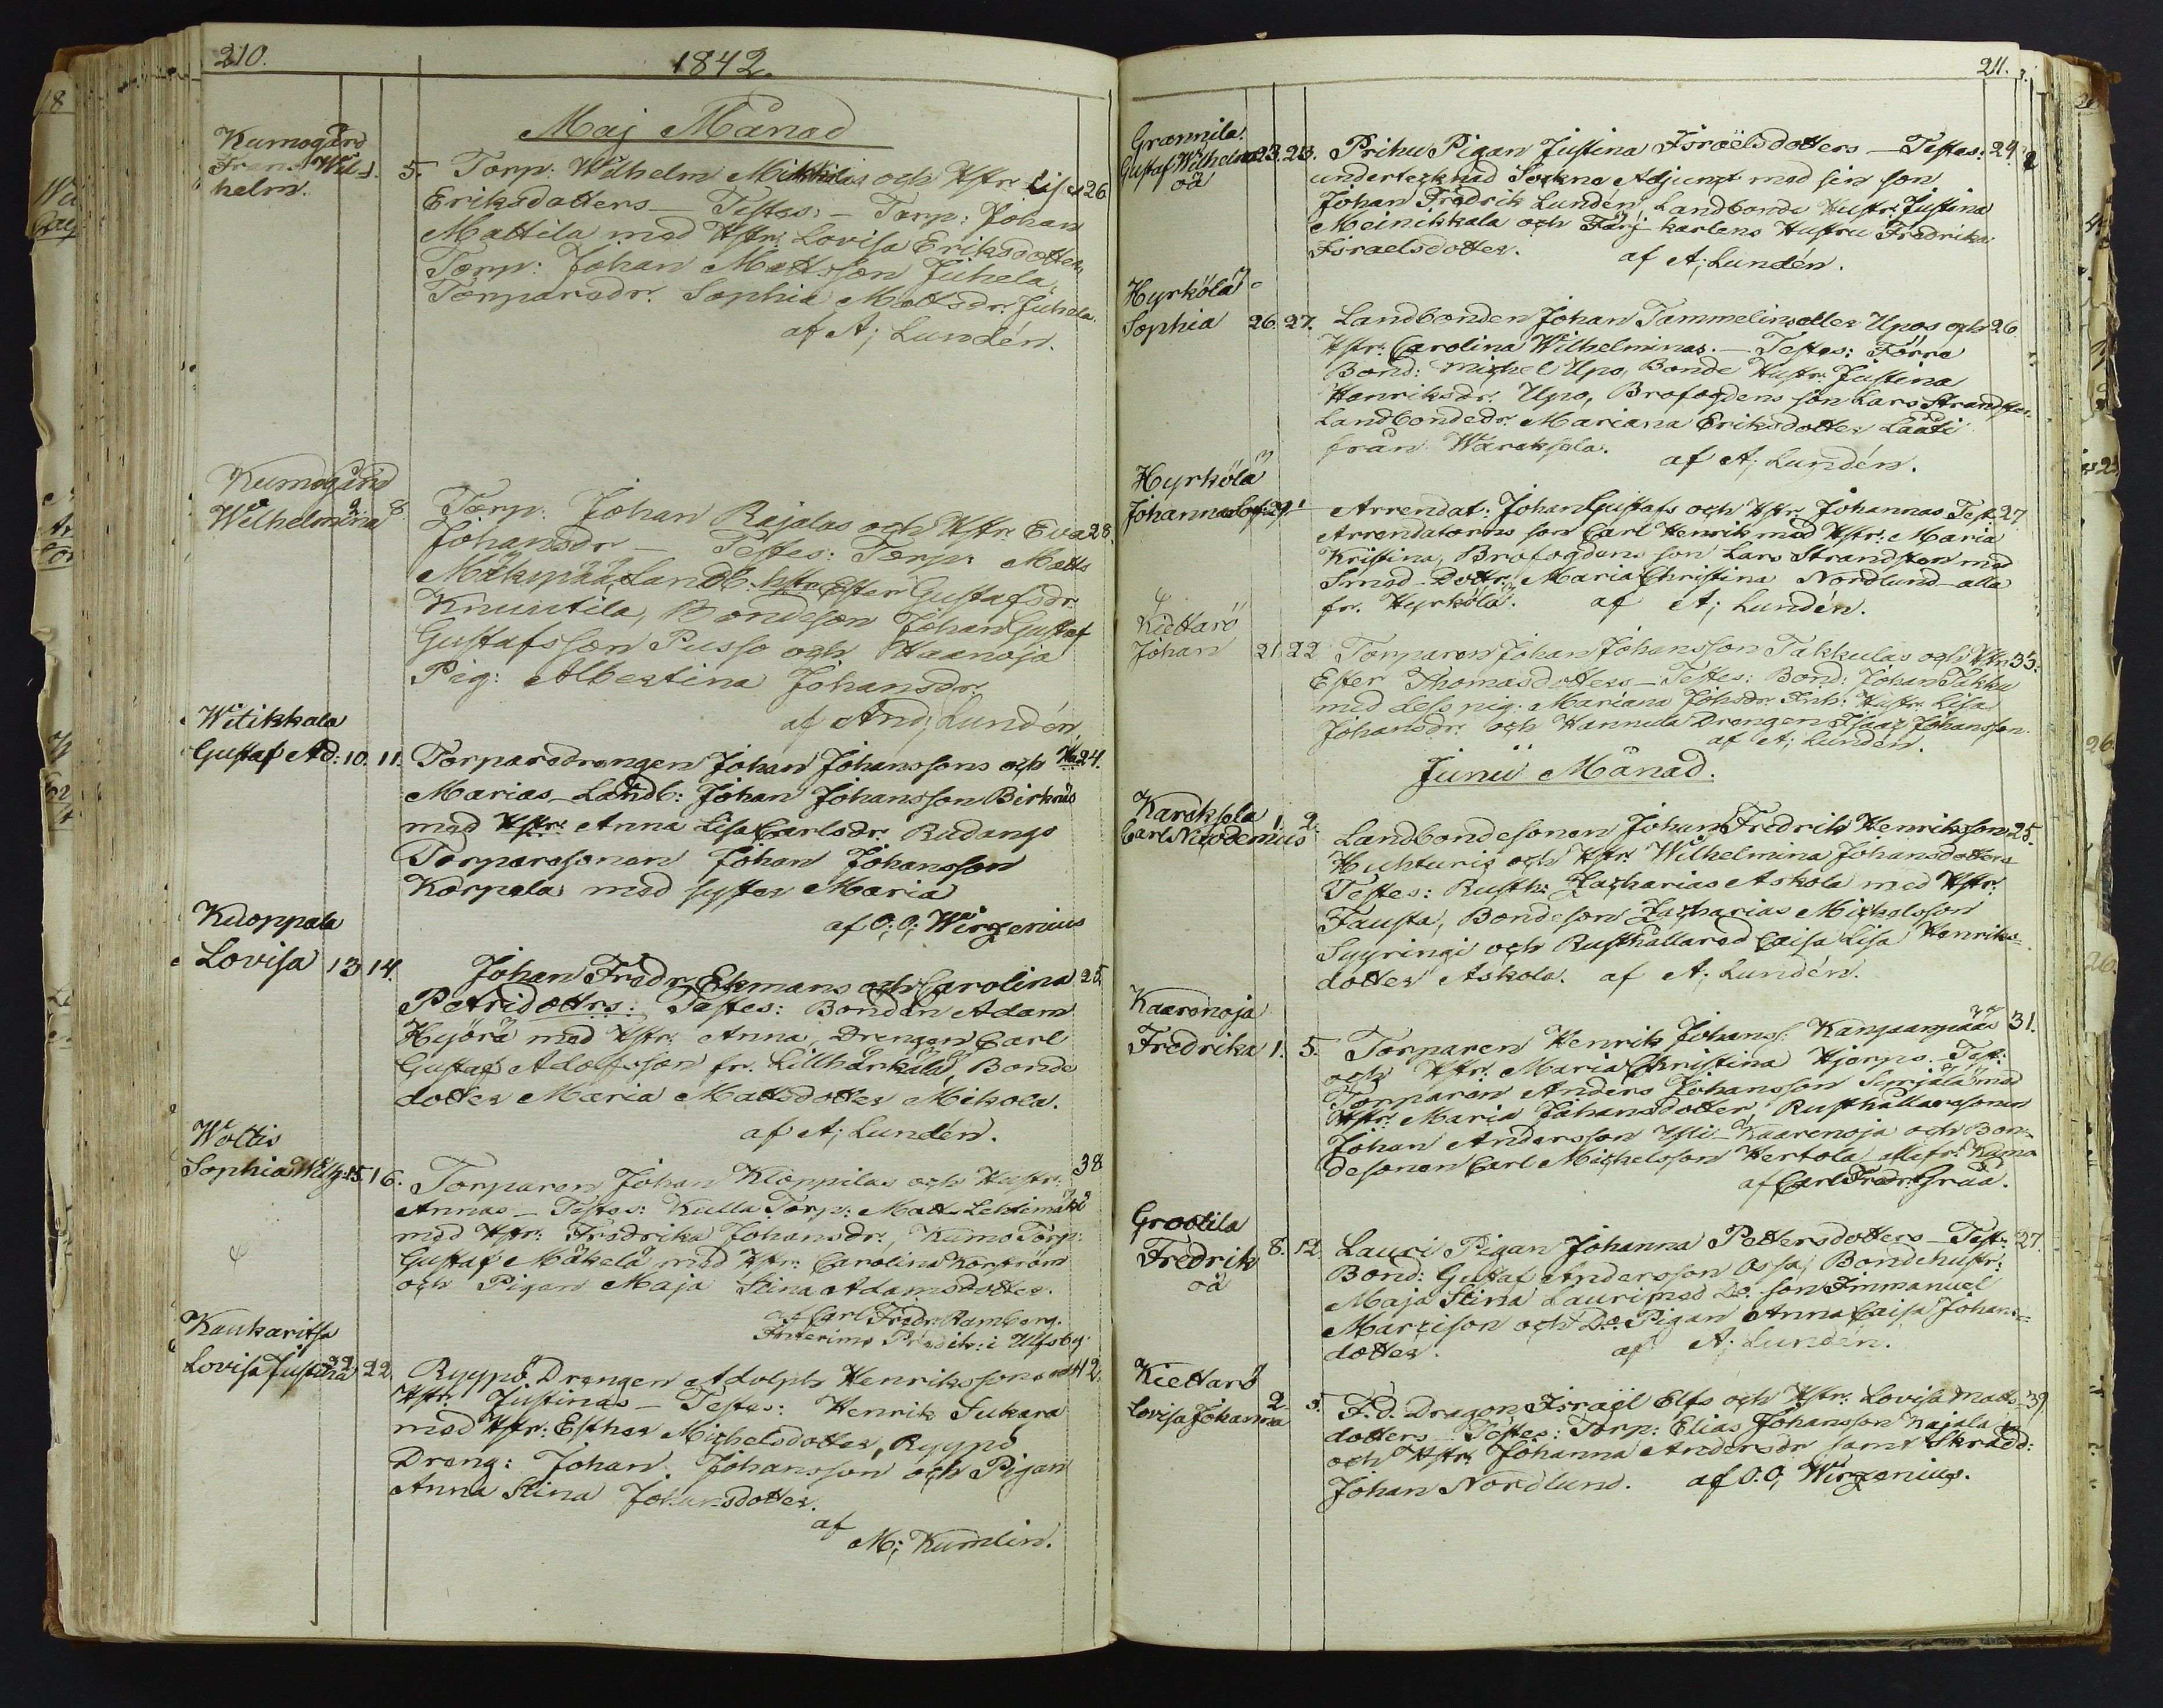 210.
1842.
Maj Månad
Kumogård
Frans Wil-
helm.
1. 5. Torp: Wilhelm Mikkilas och Hstr. Lisa 26.
Eriksdotters — Testes: — Torp: Johan
Mattila med Hstr. Lovisa Eriksdotter,
Torp: Johan Mattsson Juhela,
Torparedr. Sophia Mattsdr. Juhela.
af A; Lundén.
Kumogård
Wilhelmina 2. 8. Torp. Johan Rajalas och Hstr. Eva 28.
Johansdr — Testes: Torp: Matts
Mäkipää, Landb. hstr Ester Gustafsdr.
Knuutila, Bondeson Johan Gustaf
Gustafsson Pusso och Haanoja
Pig: Albertina Johansdr.
af And; Lundén
Witikkala
Gustaf Ad: 10. 11. Torparedrängen Johan Johanssons och Ha 24.
Marias — Landb: Johan Johansson Birkrus
med Hstr. Anna Lisa Carlsdr. Rudangs
Torparesonen Johan Johansson
Korpela med syster Maria
af O; O; Wirzenius
Kuoppala
Lovisa 13 14. Johan Fredr. Ekmans och Carolina 25
Petridottrs: Testes: Bonden Adam
Hyörä med Hstr. Anna, Drängen Carl
Gustaf Adolfsson fr. Lillhärkälä, Bonde
dotter Maria Mattsdotter Mikola.
af A; Lundén.
Woltis
Sophia Wilh: 15. 16. Torparen Johan Kloppilas och Hustr. 38
Annas — Testes: Kulla Torp: Matts Lehtimäki
med Hstr: Fredrika Johansdr, Kumo Torp:
Gustaf Mäkelä med Hstr: Carolina Korström
och Pigan Maja Stina Adamsdotter.
af Carl Fredr. Ramberg.
Interims Predik: i Ulfsby.
Kaukaritsa
Lovisa Justina 22. 22. Ryypö Drängen Adolph Henrikssons och 42.
Hstr. Justinas — Testes: Henrik Sukara
med Hstr: Esther Michelsdotter, Ryypö
Dräng: Johan Johansson och Pigan
Anna Stina Johansdotter.
af
M; Kumlin.
211.
Gustaf Wilhelm 23. 23. Prihu Pigan Justina Israelsdotters — Testes: 29.
oä
undertecknad Sockne Adjunct med sin son
Johan Fredrik Lundén, Landbonde Hustr: Justina
Meinikkala och Färj-karlens Hustru Fredrika
Israelsdotter. af A; Lundén.
Hyrkölä
Sophia 26. 27. Landbonden Johan Tammelins eller Upos och 26
Hstr. Carolina Wilhelminas. — Testes: Förre
Bond: Michel Upo, Bonde Hustr. Justina
Henriksdr. Upo, Brofogdens son Lars Strandsten
Landbondedr. Mariana Eriksdotter Laati
från Waraksola.
af A; Lundén.
Hyrkölä
Johanna Sof: 29. 1 Arrendat: Johan Gustafs och Hstr. Johannas Test: 27
Arrendatorns son Carl Henrik med Hstr: Maria
Kristina, Brofogdens son Lars Strandsten med
Smed-Dottr. Maria Christina Nordlund alla
fr. Hyrkölä. af A; Lundén.
Kiettarö
Johan 21. 22 Torparen Johan Johansson Takkulas och Hstr. 33.
Ester Thomasdotters — Testes: Bond: Johan Takku
med dess pig: Mariana Johsdr. Inh: Hustr. Lisa
Johansdr. och Hannula Drängen Isaac Johansson.
af A; Lundén.
Junii Månad.
Karaksola
Carl Nicodemus 1. 2. Landbondesonen Johan Fredrik Henrikssons 25.
Huhturis och Hstr. Wilhelmina Johansdotters
Testes: Rusth: Zacharias Askola med Hstr.
Fausta, Bondeson Zacharias Michelsson
Syyringi och Rusthållared Caisa Lisa Henriks-
dotter Askola. af A; Lundén.
Kaarenoja
Fredrika 1. 5. Torparen Henrik Johanss. Kangaanpääs 31.
och Hstr. Maria Christina Hjerps. — Test:
Torparen Anders Johansson Syrjälä med
Hstr. Maria Johansdotter, Rusthållaresonen
Johan Andersson Ylli-Kaarenoja och Bon-
desonen Carl Michelsson Hertola, alla fr. Kumo
af Carl Fredr. Graa.
Grootila
Fredrik 8. 12. Lauri Pigan Johanna Pettersdotters — Test: 27.
oä
Bond: Gustaf Andersson Ossa, Bondehustr:
Maja Stina Lauri med Do: son Immanuel
Marcison och Do: Pigan Anna Caisa Johans-
dotter. af A; Lundén.
Kiettarö
Lovisa Johanna 2. 5. F. d. Dragon Israël Elfs och Hstr: Lovisa Matts- 39
dotters — Testes: Torp: Elias Johansson Rajala
och Hstr Johanna Andersdr samt Skrädd:
Johan Nordlund. af O. O; Wirzenius.